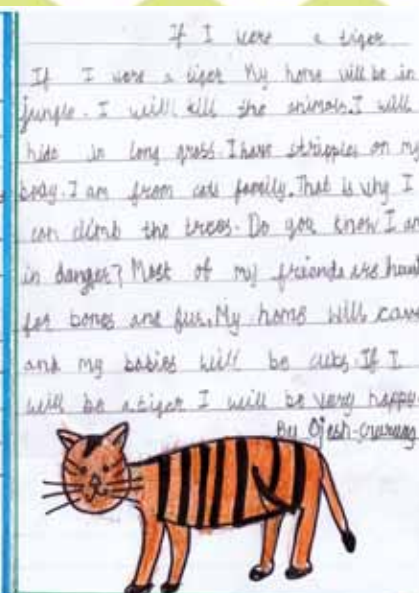 If I were a tiger
If I were a tiger My home will be in
jungle. I will kill the animals. I will
hide in long grass. I have strippies on my
body. I am from cats family. That is why I
can climb the trees. Do you know I am
in danger? Most of my friends are hunt
for bones and fur. My home will cave
and my babies will be cubs. If I
will be a tiger I will be very happy.
By Ojesh